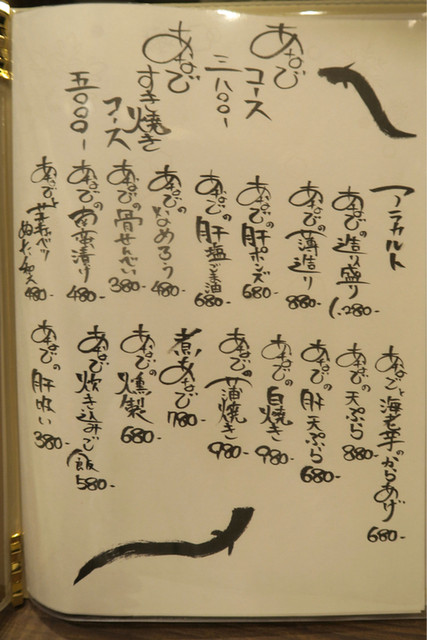 あなご
コース
三八〇〇-
あなご
すき焼き
コース
五〇〇〇-
アラカルト
あなごの造り盛り 1,280-
あなごの薄造り 880-
あなごの肝ポンズ 680-
あなごの肝塩ごま油 680-
あなごのなめろう 480-
あなごの骨せんべい 380-
あなごの南蛮漬け 480-
あなごと
ぬた和え 480-
あなごと海老芋のからあげ 680-
あなごの天ぷら 880-
あなごの肝天ぷら 680-
あなごの白焼き 980-
あなごの蒲焼き 980-
煮あなご 780-
あなごの燻製 680-
あなご炊き込みご飯 580-
あなごの肝吸い 380-